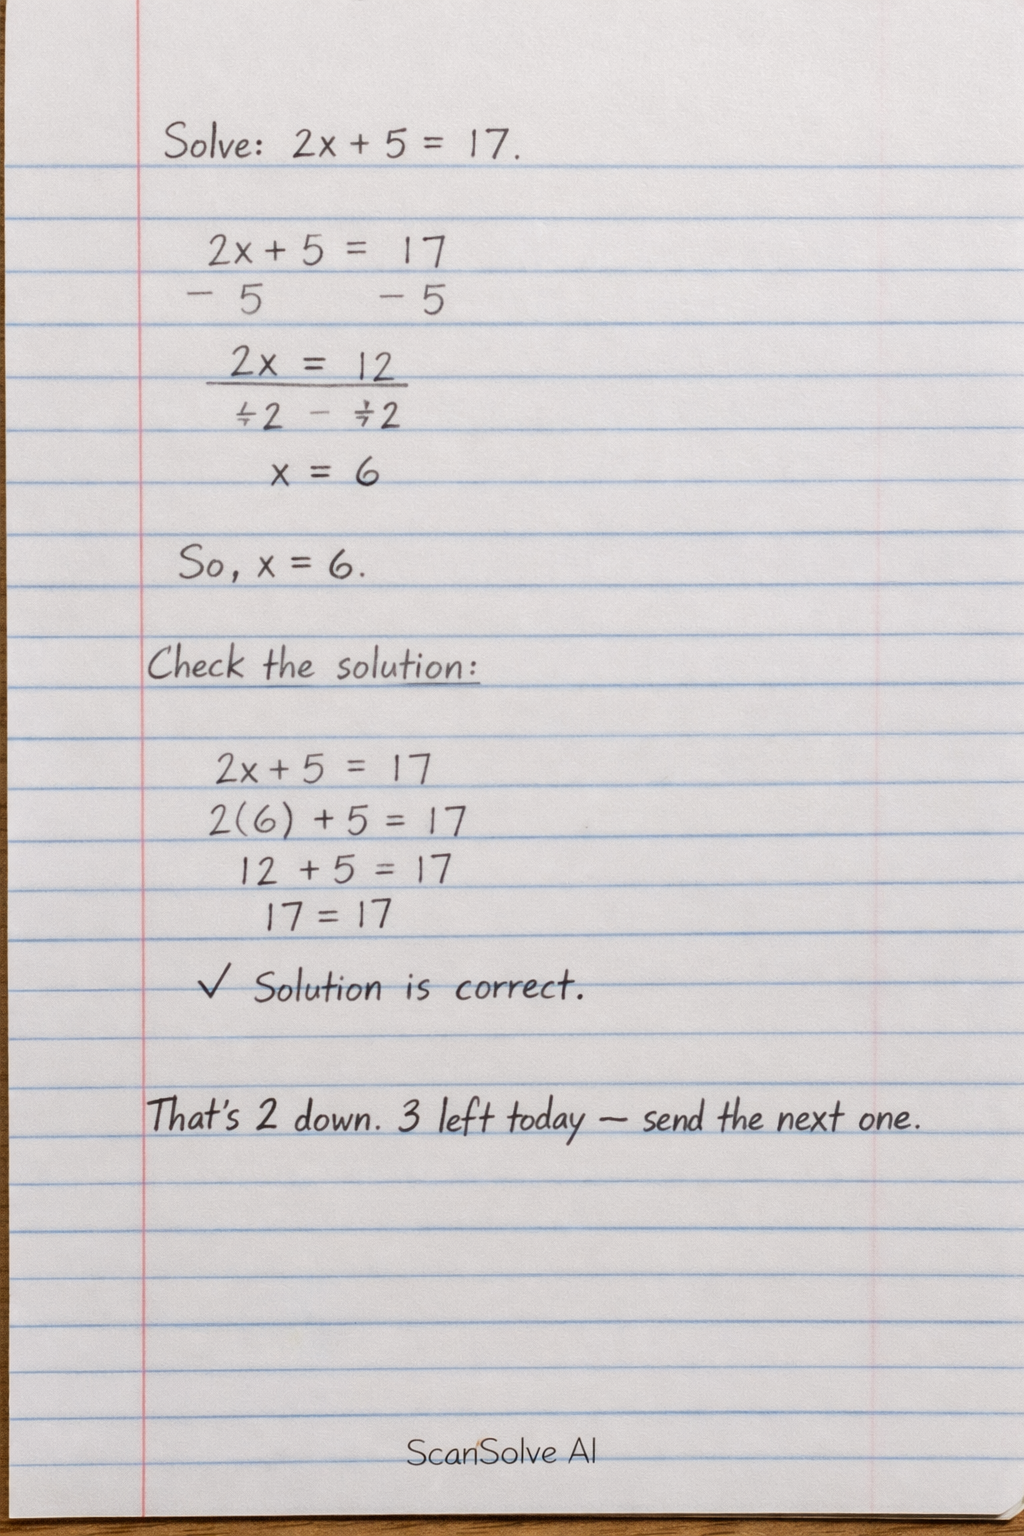 Solve: 2x + 5 = 17.
2x + 5 = 17
− 5 − 5
2x = 12
÷2 − ÷2
x = 6
So, x = 6.
Check the solution:
2x + 5 = 17
2(6) + 5 = 17
12 + 5 = 17
17 = 17
✓ Solution is correct.
That's 2 down. 3 left today — send the next one.
ScanSolve AI